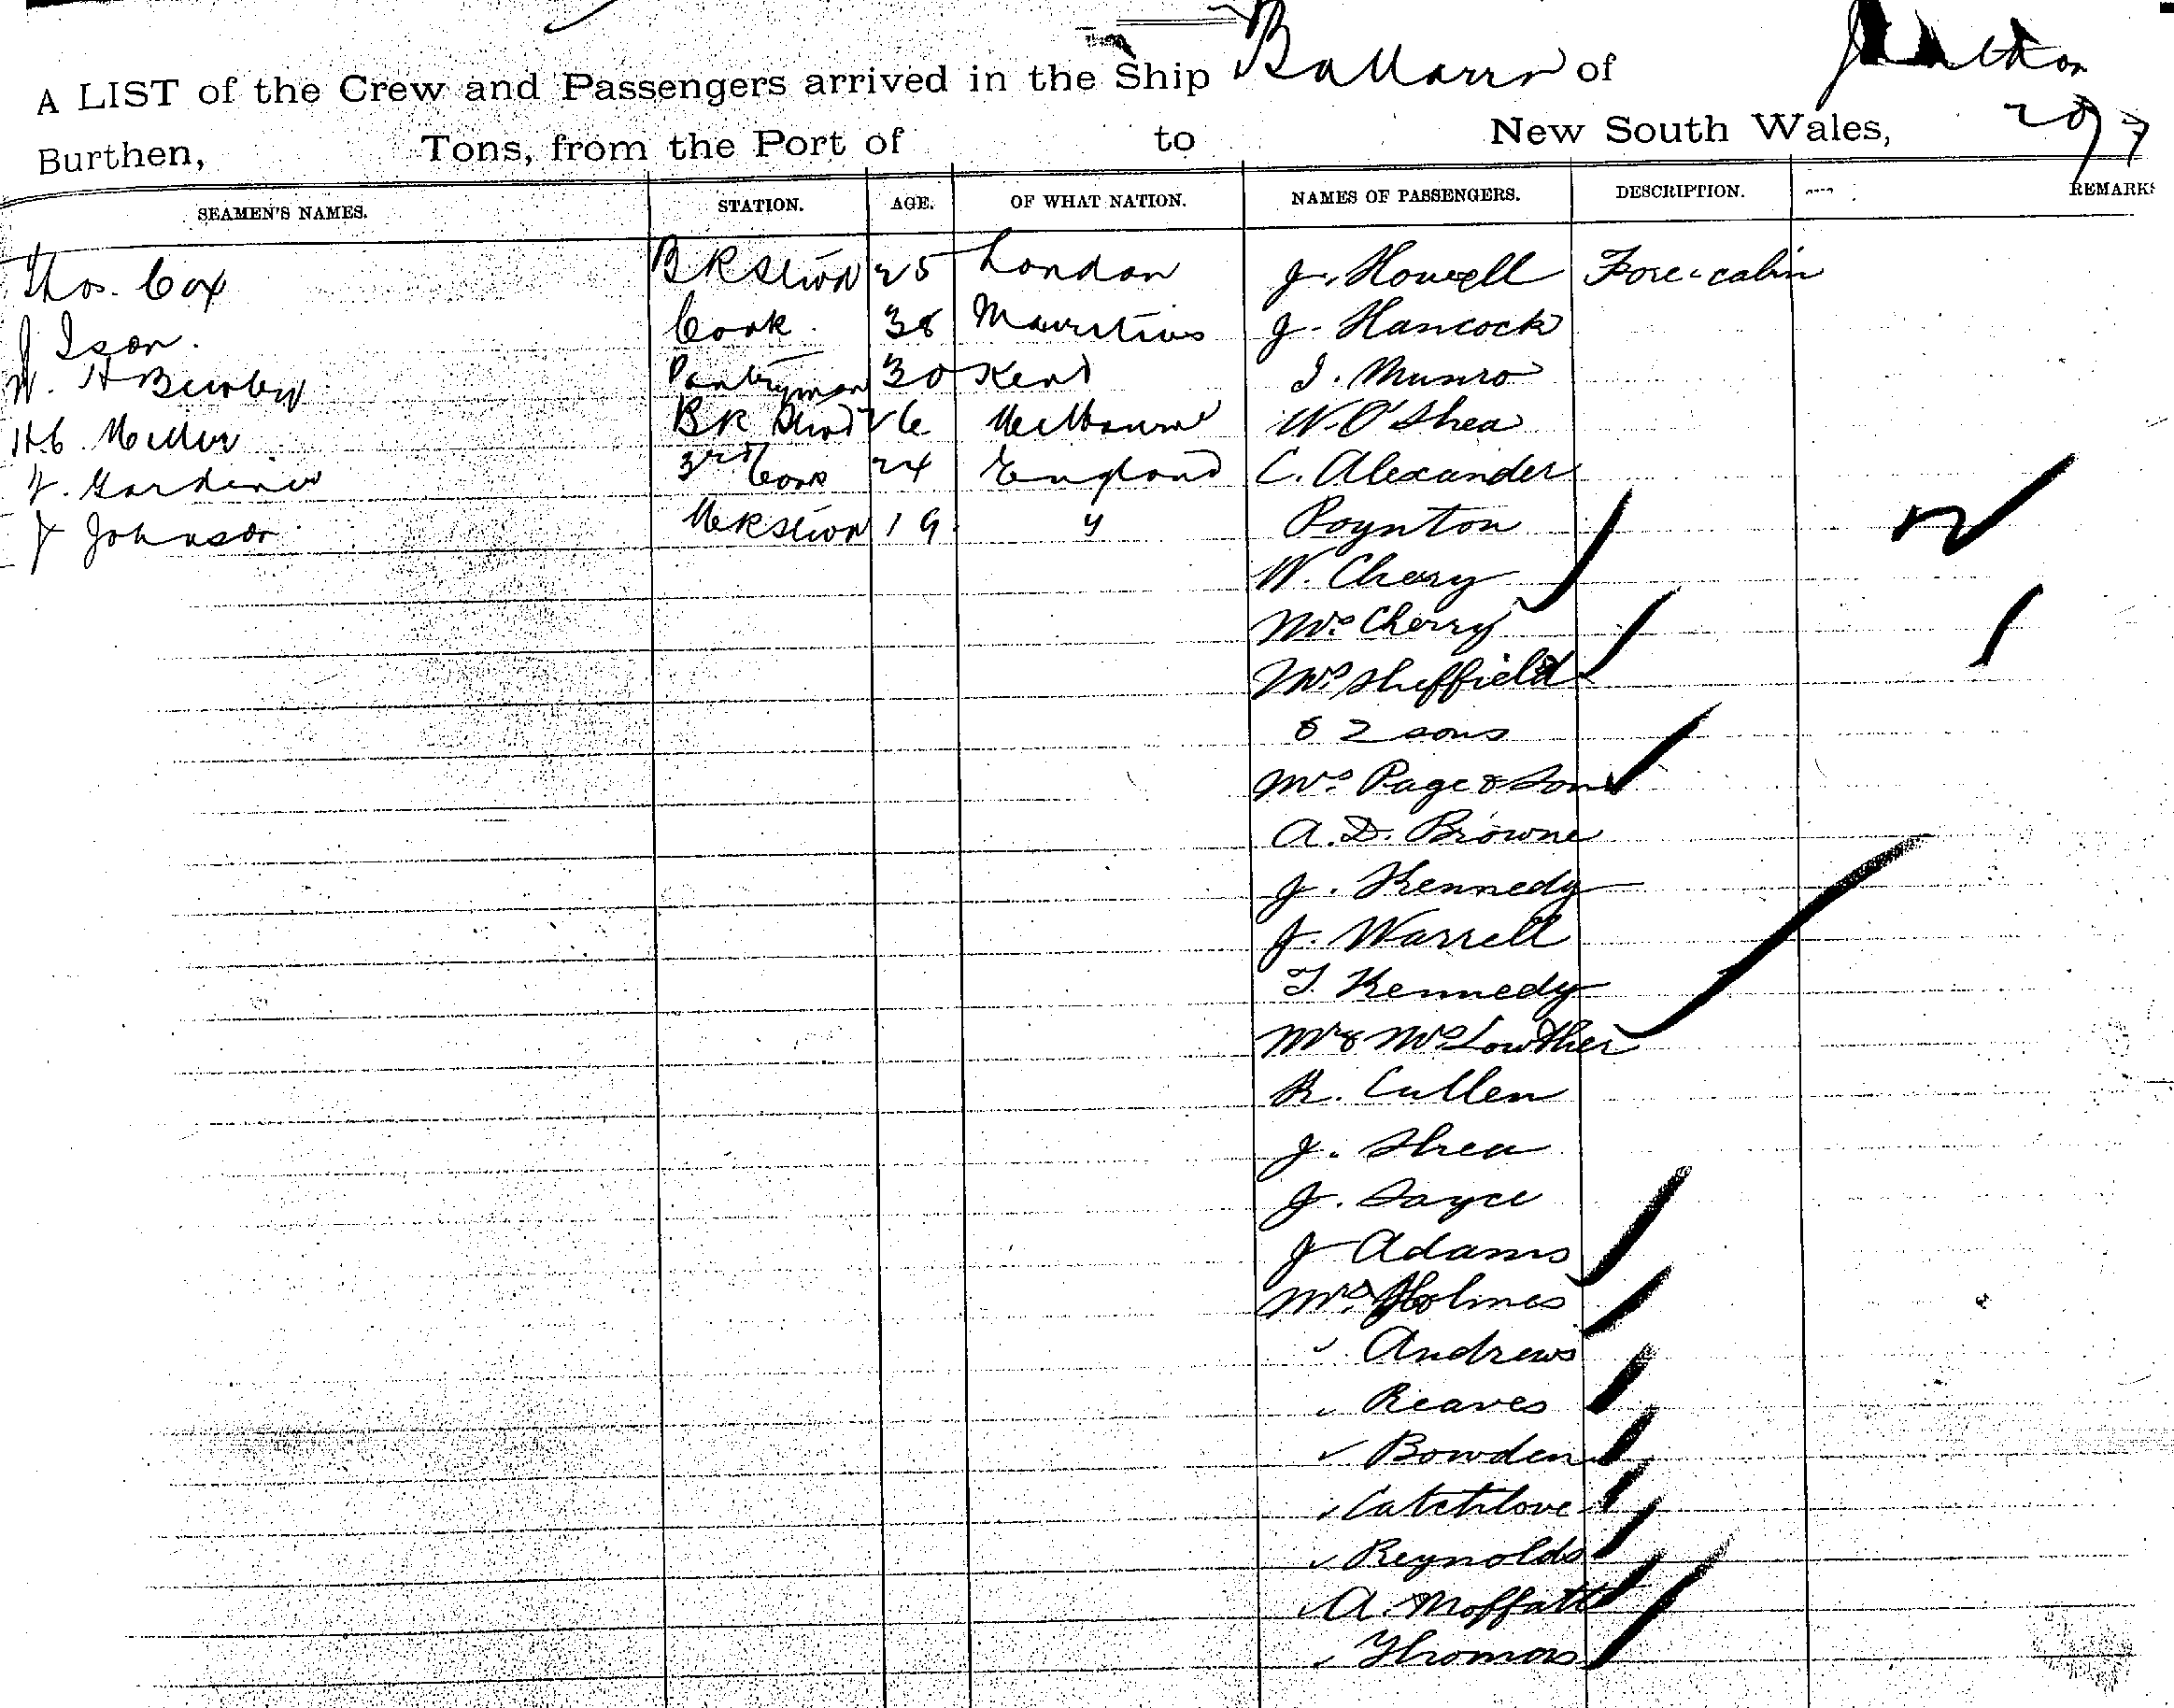 A LIST of the Crew and Passengers arrived in the Ship of
Burthen, Tons, from the Port of to New South Wales,
SEAMEN'S NAMES. STATION. AGE. OF WHAT NATION. NAMES OF PASSENGERS. DESCRIPTION. REMARKS
Thos. Cox 25 London J. Howell Fore-cabin
J Ison. Cook. 38 Mauritius J. Hancock
W. H Pantryman 30 Kent J. Munro
H C Miller BR 26 Melbourne W. O'Shea
Gardiner 3rd Cook 24 England C. Alexander
J Johnson 19 " Poynton
W. Chery
Mrs Cherry
Mrs Sheffield
& 2 sons
Mrs Page & Son
A. D. Browne
J. Kennedy
J. Warrell
T. Kennedy
Mr & Mrs Lowther
R. Cullen
J. Shea
J. Sayce
J Adams
Mrs Holmes
" Andrews
" Reaves
" Bowden
" Catchlove
" Reynolds
" A. Moffatt
" Thomas